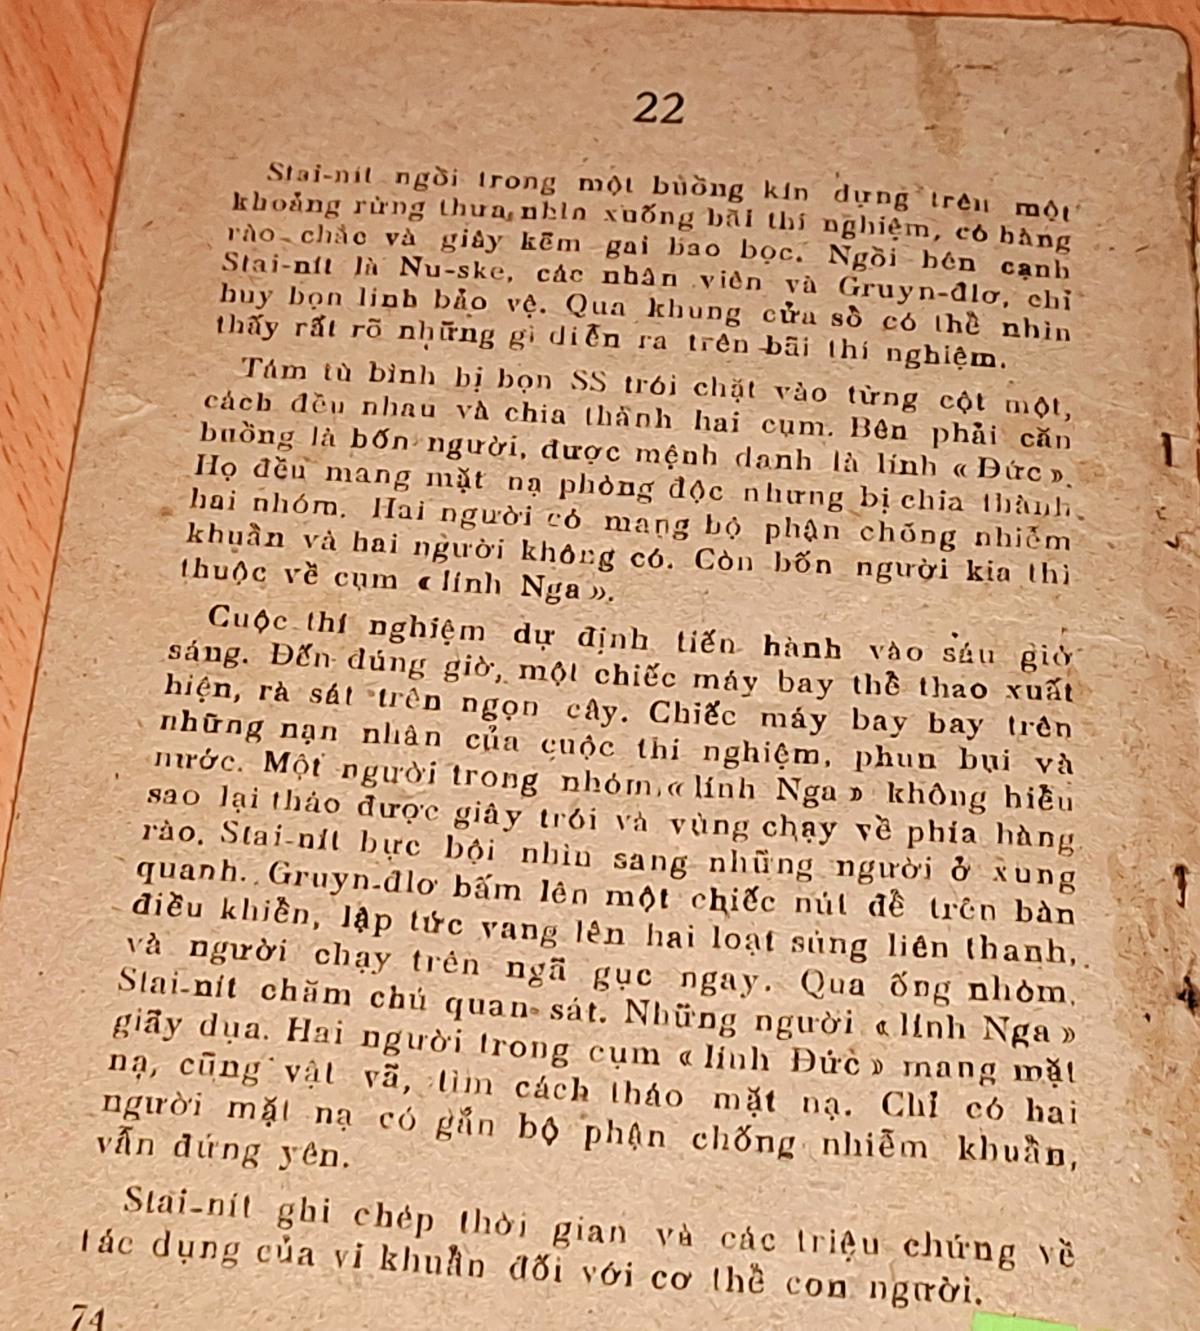 22
Stai-nít ngồi trong một buồng kín dựng trên một
khoảng rừng thưa, nhìn xuống bãi thí nghiệm, có hàng
rào chắc và giây kẽm gai bao bọc. Ngồi bên cạnh
Stai-nít là Nu-ske, các nhân viên và Gruyn-đlơ, chỉ
huy bọn lính bảo vệ. Qua khung cửa sổ có thể nhìn
thấy rất rõ những gì diễn ra trên bãi thí nghiệm.
Tám tù bình bị bọn SS trói chặt vào từng cột một,
cách đều nhau và chia thành hai cụm. Bên phải căn
buồng là bốn người, được mệnh danh là lính « Đức ».
Họ đều mang mặt nạ phòng độc nhưng bị chia thành
hai nhóm. Hai người có mang bộ phận chống nhiễm
khuẩn và hai người không có. Còn bốn người kia thì
thuộc về cụm « lính Nga ».
Cuộc thí nghiệm dự định tiến hành vào sáu giờ
sáng. Đến đúng giờ, một chiếc máy bay thể thao xuất
hiện, rà sát trên ngọn cây. Chiếc máy bay bay trên
những nạn nhân của cuộc thí nghiệm, phun bụi và
nước. Một người trong nhóm « lính Nga » không hiểu
sao lại tháo được giây trói và vùng chạy về phía hàng
rào. Stai-nít bực bội nhìn sang những người ở xung
quanh. Gruyn-đlơ bấm lên một chiếc nút để trên bàn
điều khiển, lập tức vang lên hai loạt súng liên thanh,
và người chạy trên ngã gục ngay. Qua ống nhòm,
Stai-nít chăm chú quan sát. Những người « lính Nga »
giãy dụa. Hai người trong cụm « lính Đức » mang mặt
nạ, cũng vật vã, tìm cách tháo mặt nạ. Chỉ có hai
người mặt nạ có gắn bộ phận chống nhiễm khuẩn,
vẫn đứng yên.
Stai-nít ghi chép thời gian và các triệu chứng về
tác dụng của vi khuẩn đối với cơ thể con người.
74